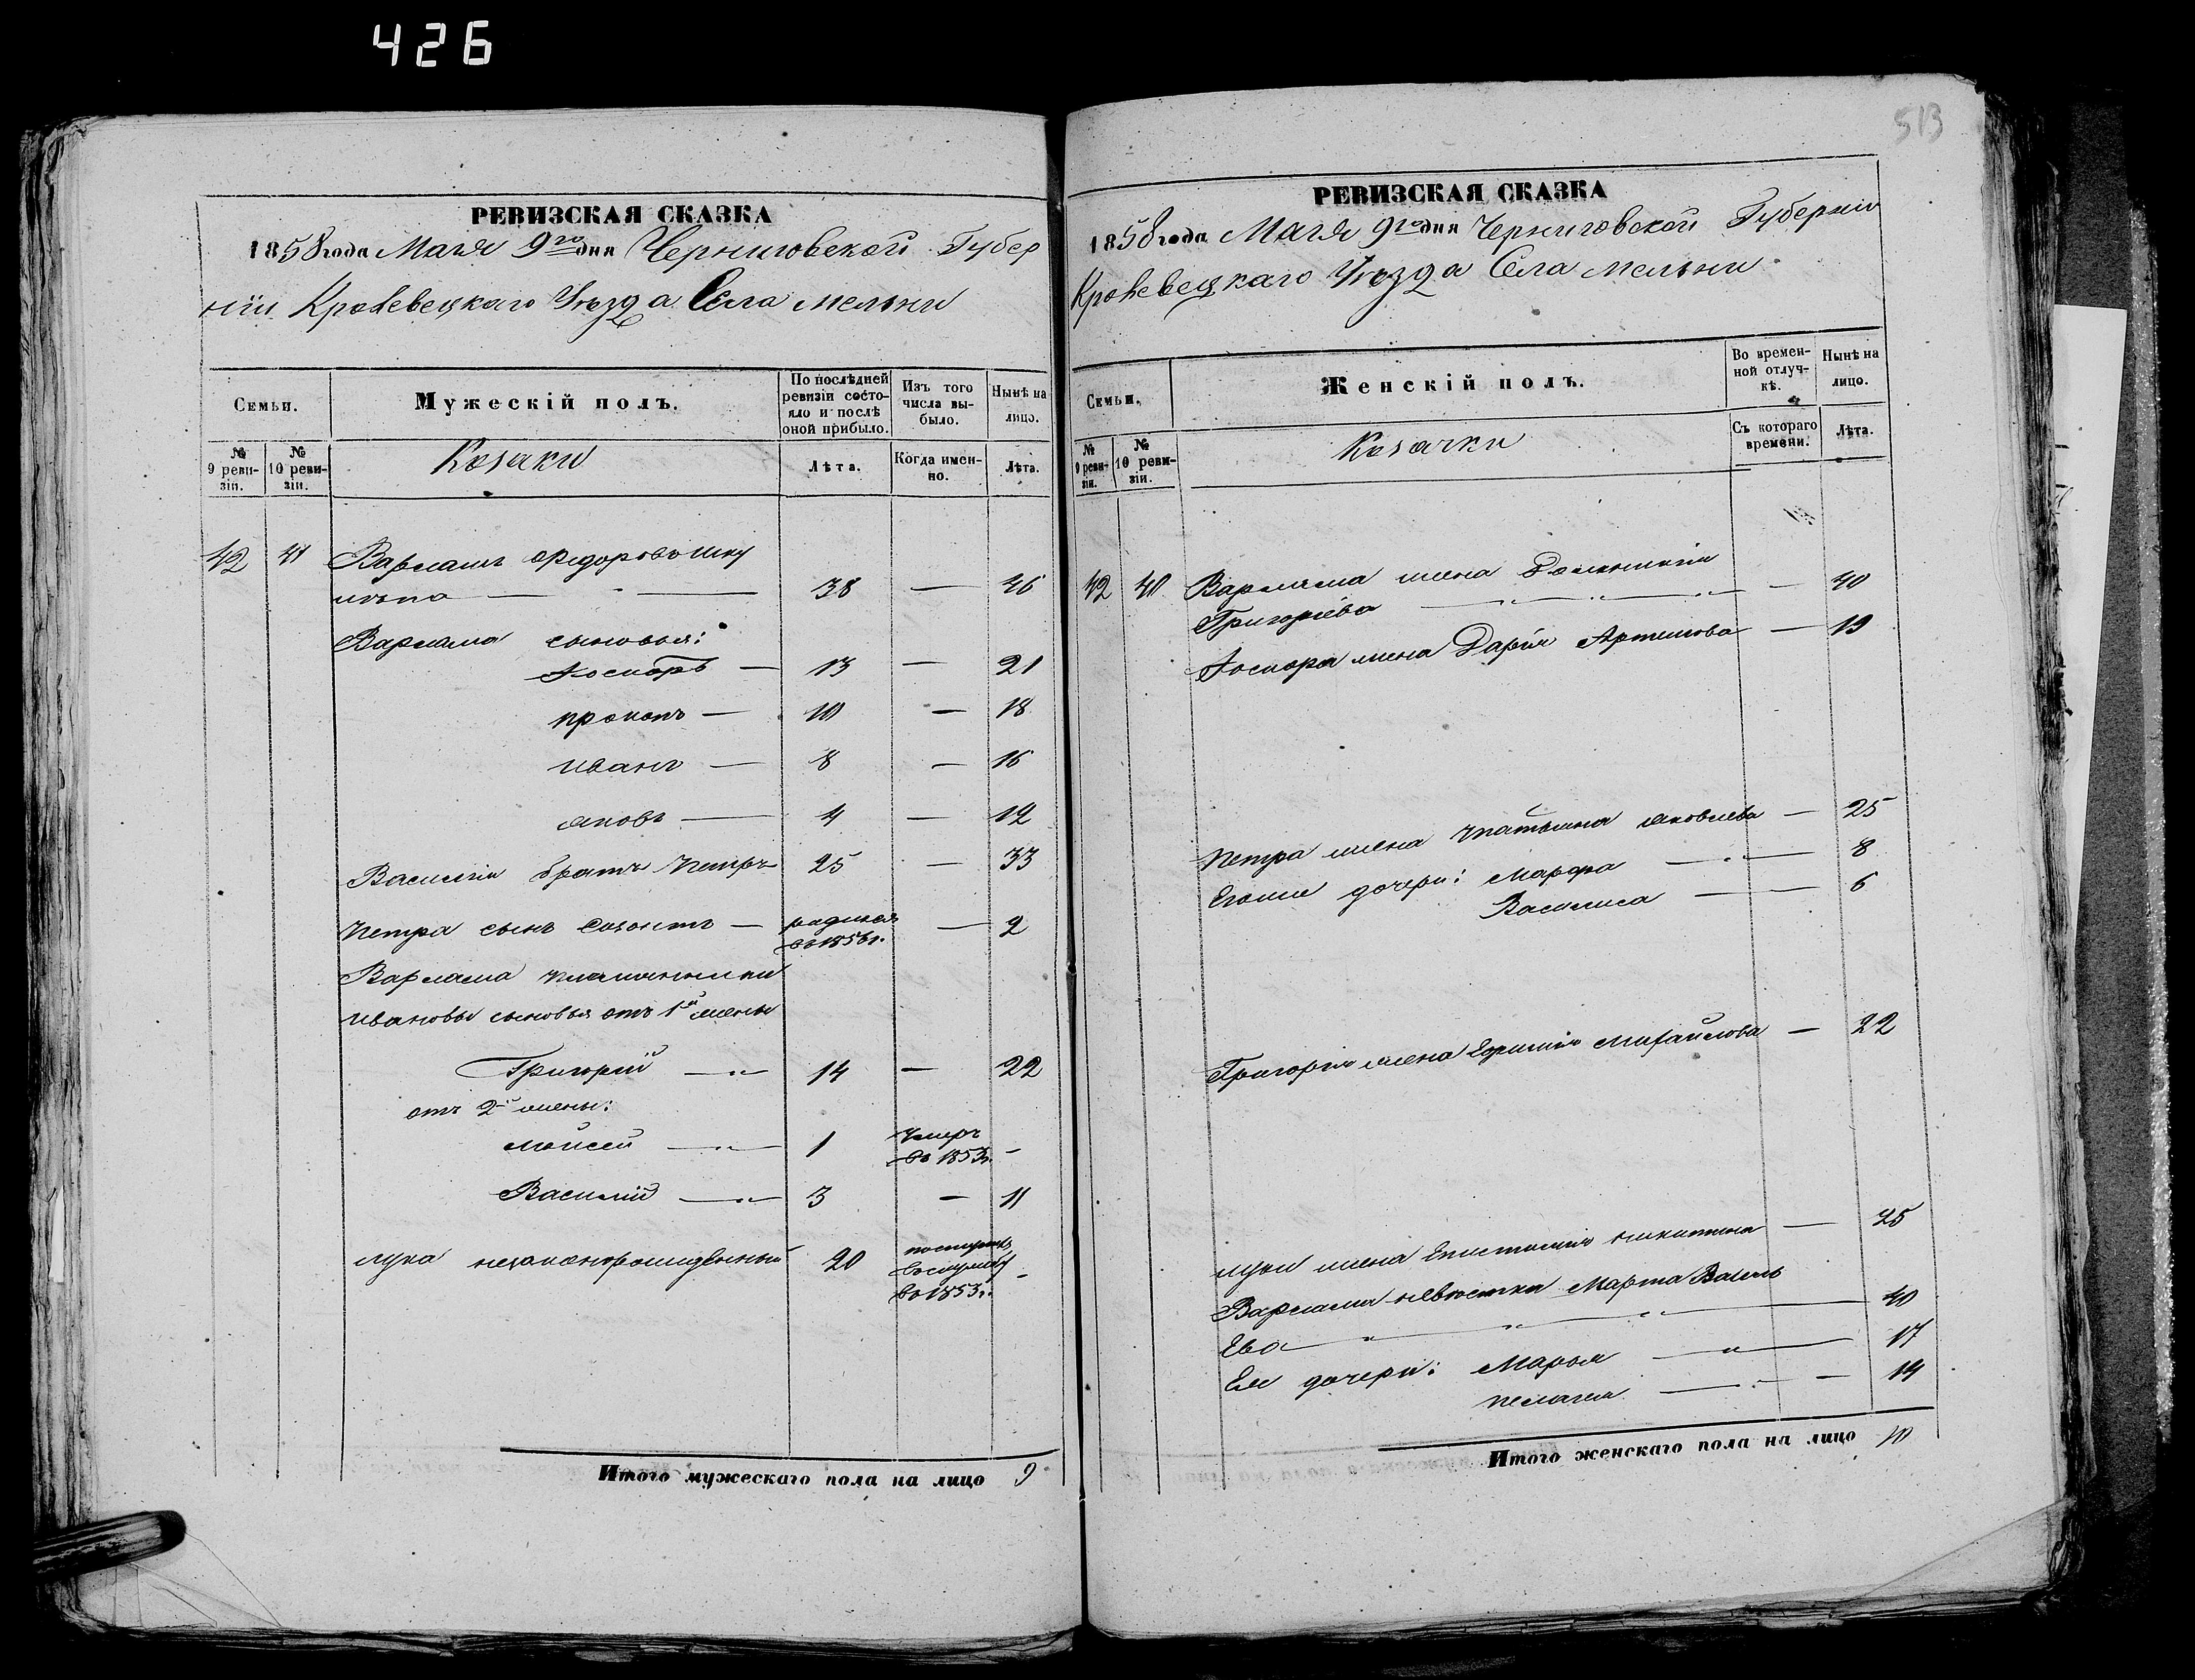 426
513
РЕВИЗСКАЯ СКАЗКА
1858 года Маія 9го дня Черниговской Губер
ніи Кролевецкаго Уѣзда Села Мельни
Семьи.
Мужескій полъ.
По послѣдней ревизіи состояло и послѣ оной прибыло.
Изъ того числа выбыло.
Нынѣ на лицо.
№ 9 ревизіи.
№ 10 ревизіи.
Козаки
Лѣта.
Когда именно.
Лѣта.
42 Варламъ Федоровъ
38 — 46
Варлама сыновья:
13 — 21
Прокопъ — 10 — 18
Иванъ — 8 — 16
Яковъ — 4 — 12
Василій братъ Петръ 25 — 33
Петра сынъ Созонтъ — родился въ 1856г. — 2
Варлама племянники
Ивановы сыновья отъ 1й жены
Григорій — 14 — 22
отъ 2й жены:
Мойсей — 1 Умеръ въ 1853г. -
Василій — 3 - 11
Лука незаконнорожденный 20 въ 1853г. -
Итого мужескаго пола на лицо 9
РЕВИЗСКАЯ СКАЗКА
1858 года Маія 9го дня Черниговской Губерніи
Кролевецкаго Уѣзда Села Мельни
Семьи.
Женскій полъ.
Во временной отлучкѣ.
Нынѣ на лицо.
№ 9 ревизіи.
№ 10 ревизіи.
Козачки
Съ котораго времени.
Лѣта.
42 40 Варлама жена
Григоріева — 40
жена Дарія Артемова — 19
Петра жена Татьяна Яковлева — 25
Егоже дочери: Марфа — 8
Василиса — 6
Григорія жена Ефимія Михайлова — 22
Луки жена Епистимія Никитина — 25
Варлама невѣстка Марфа Василь
ева — 40
Ея дочери: Марья — 17
Пелагея — 14
Итого женскаго пола на лицо 10